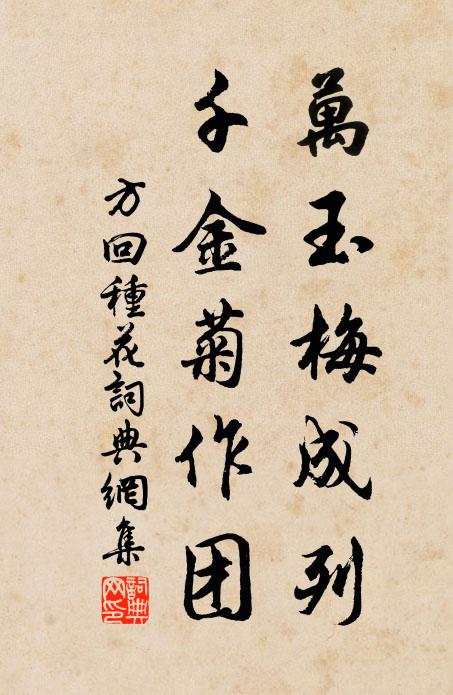 萬玉梅成列
千金菊作团
方回種花詞典網集
詞典網印